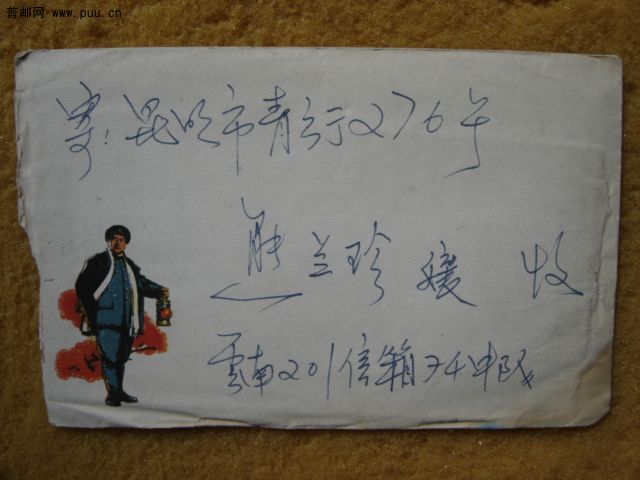 普邮网 www.puu.cn
寄:昆明市青云街276号
兰珍 收
云南201信箱 中队